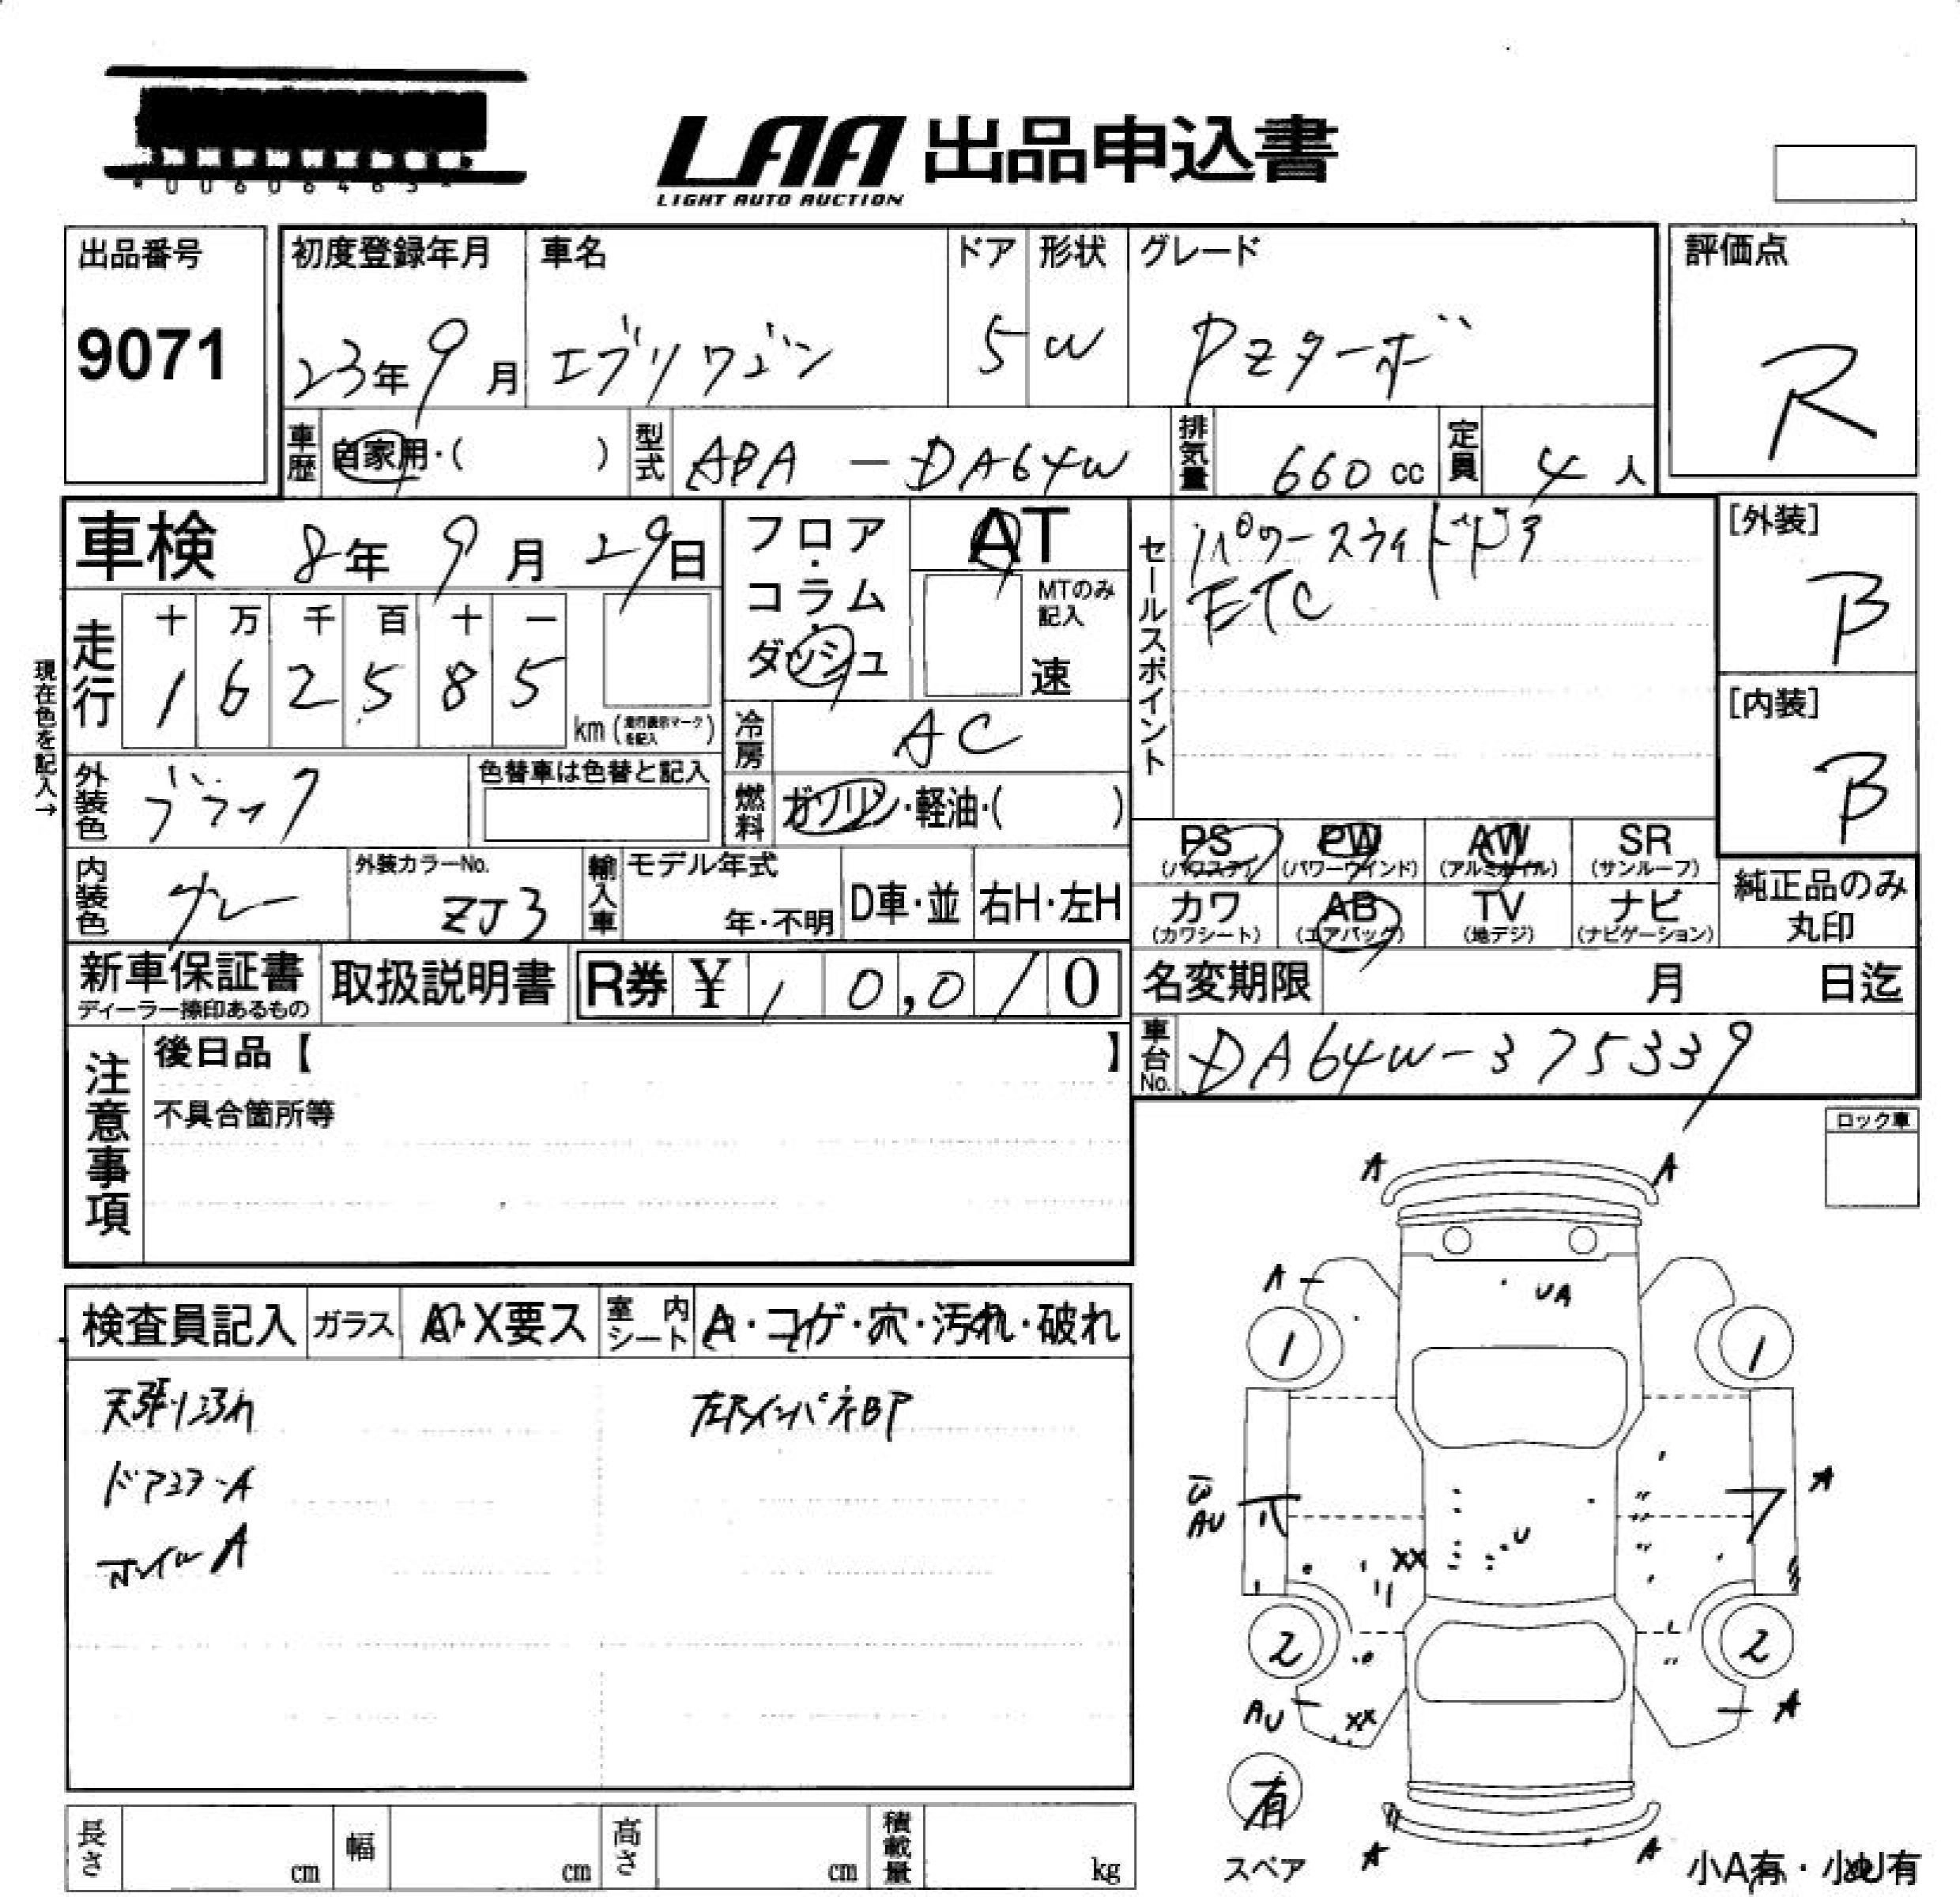 LAA 出品申込書
LIGHT AUTO AUCTION
出品番号
9071
初度登録年月
23年9月
車名
エブリワゴン
ドア
5
形状
W
グレード
PZターボ
評価点
R
車歴
自家用・( )
型式
ABA-DA64W
排気量
660cc
定員
4人
車検
8年9月29日
フロア・コラム・ダッシュ
AT
MTのみ記入
速
セールスポイント
パワースライドドア
ETC
[外装]
B
[内装]
B
現在色を記入→
走行
十 万 千 百 十 一
1 6 2 5 8 5
km (走行表示マークを記入)
冷房
AC
外装色
ブラック
色替車は色替と記入
燃料
ガソリン・軽油・( )
PS
(パワステ)
PW
(パワーウインド)
AW
(アルミホイル)
SR
(サンルーフ)
内装色
グレー
外装カラーNo.
ZJ3
輸入車
モデル年式
年・不明
D車・並
右H・左H
カワ
(カワシート)
AB
(エアバック)
TV
(地デジ)
ナビ
(ナビゲーション)
純正品のみ
丸印
新車保証書
ディーラー捺印あるもの
取扱説明書
R券 ¥ 1 0,0 / 0
名変期限
月 日迄
車台No.
DA64W-375339
注意事項
後日品【 】
不具合箇所等
ロック車
検査員記入
ガラス
A・X要ス
室内シート
A・コゲ・穴・汚れ・破れ
天張り汚れ
左Rインパネ BP
ホイル A
A A
A UA
1 1
A
AU
XX U
2 2
AU XX A
有
スペア
A A
小A有・小U有
長さ cm
幅 cm
高さ cm
積載量 kg